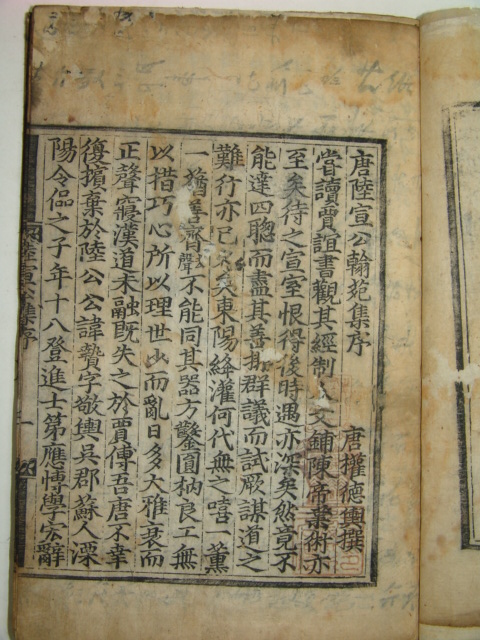 唐陸宣公翰苑集序
唐權德輿撰
嘗讀賈誼書觀其經制人文鋪陳帝業術亦
至矣待之宣室恨得後時遇亦深矣然竟不
能達四聦而盡其善排群議而試厥謀道之
難行亦已矣東陽絳灌何代無之嘻薰
一蕕善齊不能同其器方鑿圓枘良工無
以措巧心所以理世少而亂日多大雅衰而
正聲寢漢道未融既失之於賈傅吾唐不幸
復擯棄於陸公公諱贄字敬輿吳郡蘇人溧
陽令偘之子年十八登進士第應博學宏辭
陸宣公集序
一